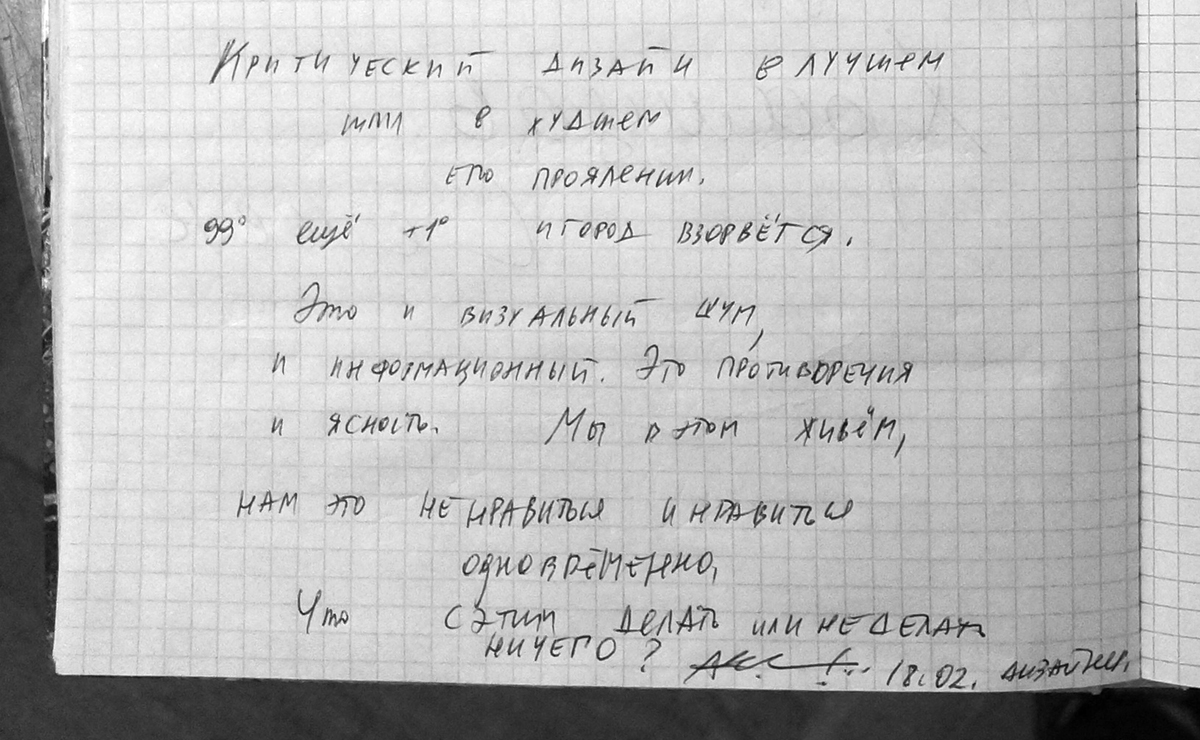 Критический дизайн в лучшем
или в худшем
его проялении.
99° ещё +1° и город взорвётся.
Это и визуальный шум,
и информационный. Это противоречия
и ясность. Мы в этом живём,
нам это не нравиться и нравиться
одновременно,
Что с этим делать или не делать
ничего? 18.02. дизайнер.